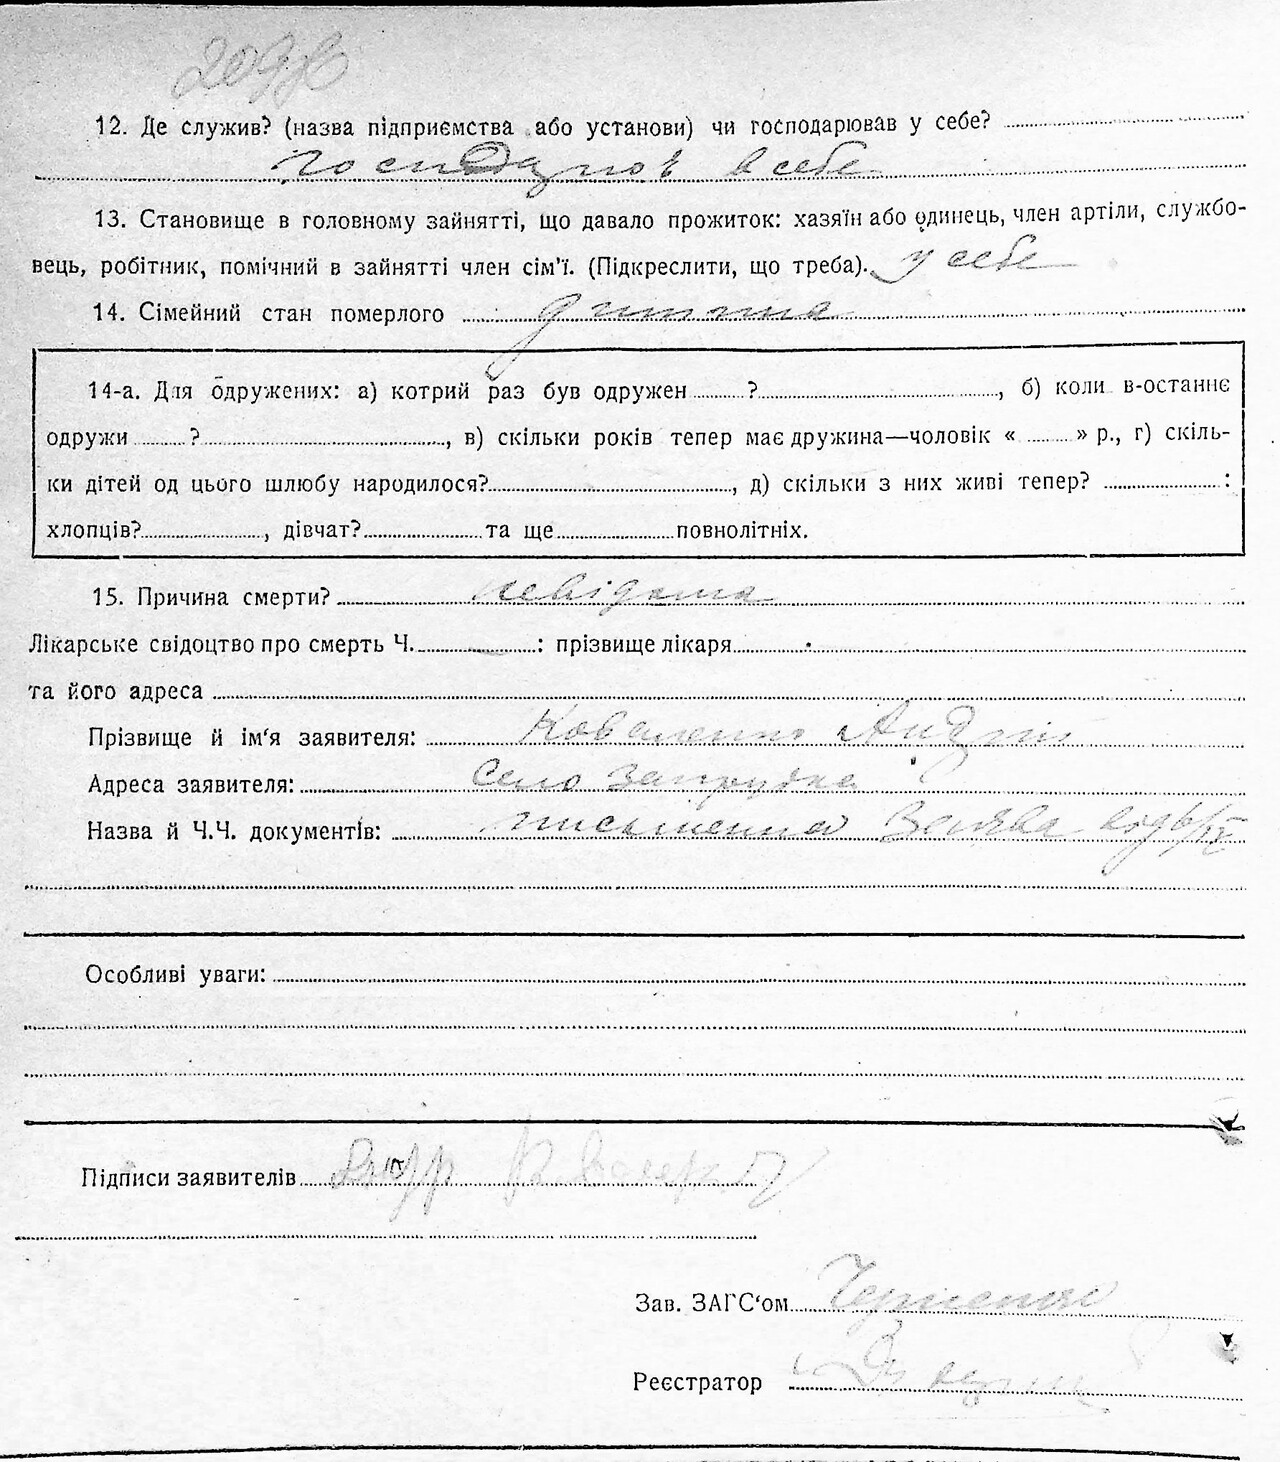 12. Де служив? (назва підприємства або установи) чи господарював у себе?
господарюв в себе
13. Становище в головному зайнятті, що давало прожиток: хазяїн або одинець, член артіли, службо-
вець, робітник, помічний в зайнятті член сім'ї. (Підкреслити, що треба). у себе
14. Сімейний стан померлого дитина
14-а. Для одружених: а) котрий раз був одружен ?, б) коли в-останнє
одружи ?, в) скільки років тепер має дружина—чоловік « » р., г) скіль-
ки дітей од цього шлюбу народилося?, д) скільки з них живі тепер? :
хлопців?, дівчат? та ще повнолітніх.
15. Причина смерти? невідома
Лікарське свідоцтво про смерть Ч. : прізвище лікаря
та його адреса
Прізвище й ім'я заявителя: Коваленко Андрій
Адреса заявителя: село Запрудка
Назва й Ч.Ч. документів: письменна Заява
Особливі уваги:
Підписи заявителів
Зав. ЗАГС'ом
Реєстратор